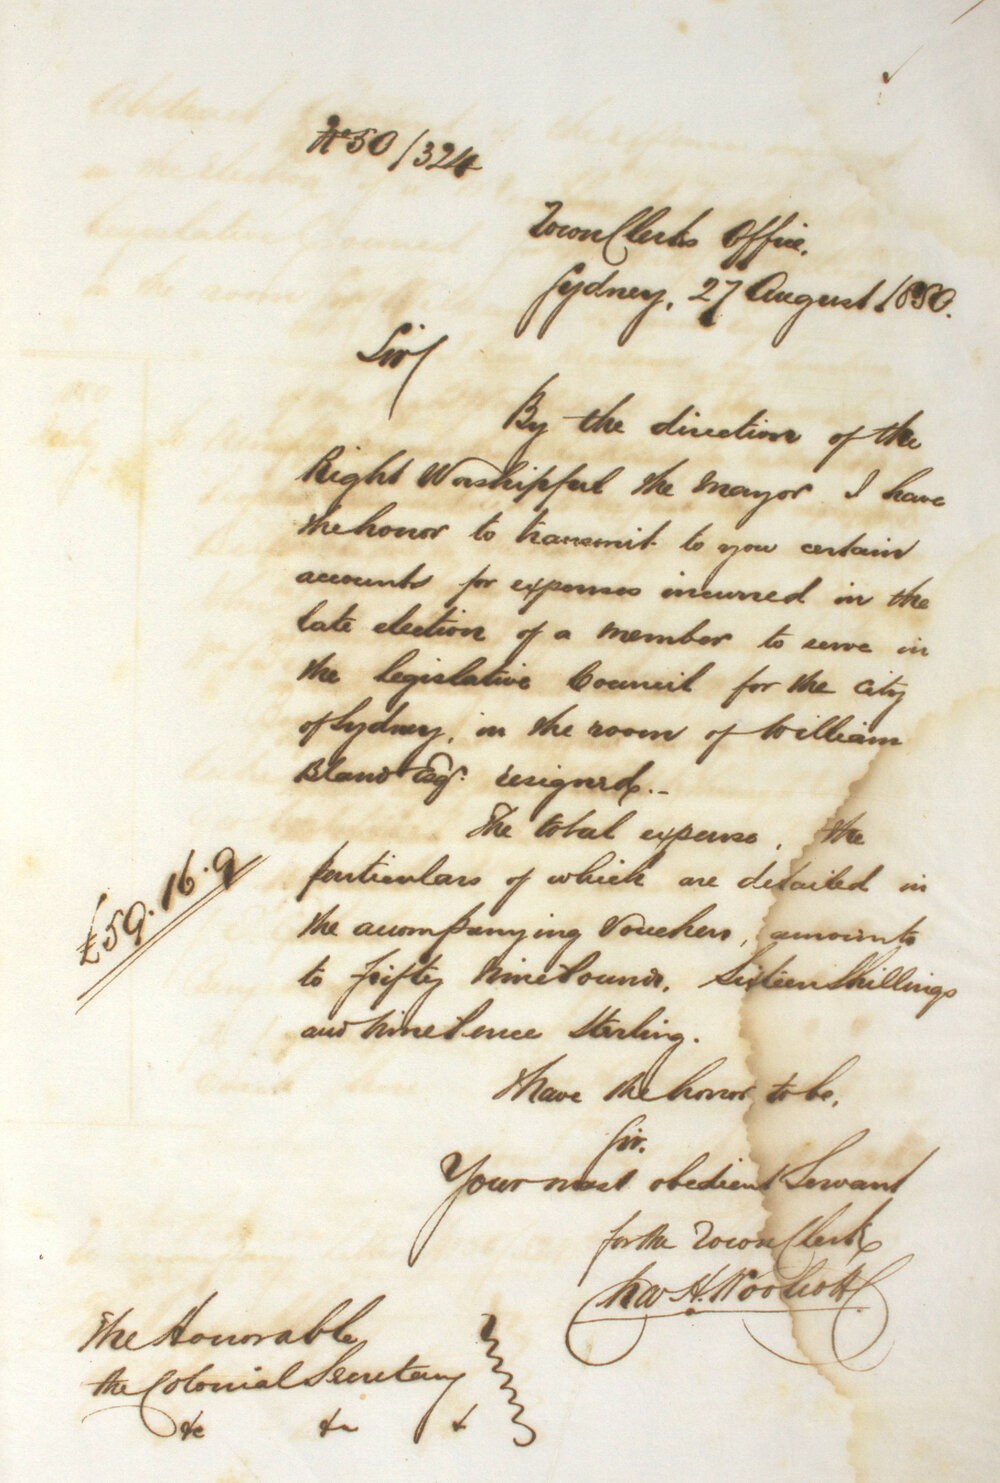 No 50/324
Town Clerks Office.
Sydney, 27 August 1850.
Sir
By the direction of the
Right Worshipful the Mayor I have
the honor to transmit to you certain
accounts for expenses incurred in the
late election of a member to serve in
the legislative Council for the City
of Sydney, in the room of William
Bland Esq. resigned.-
The total expense, the
particulars of which are detailed in
the accompanying Vouchers, amounts
£59.16.9
to Fifty Nine Pounds, Sixteen Shillings
and Nine Pence Sterling.
I have the honor to be,
Sir,
Your most obedient Servant
for the Town Clerk
Chas H. Woolcott
The Honorable
the Colonial Secretary
&c &c &